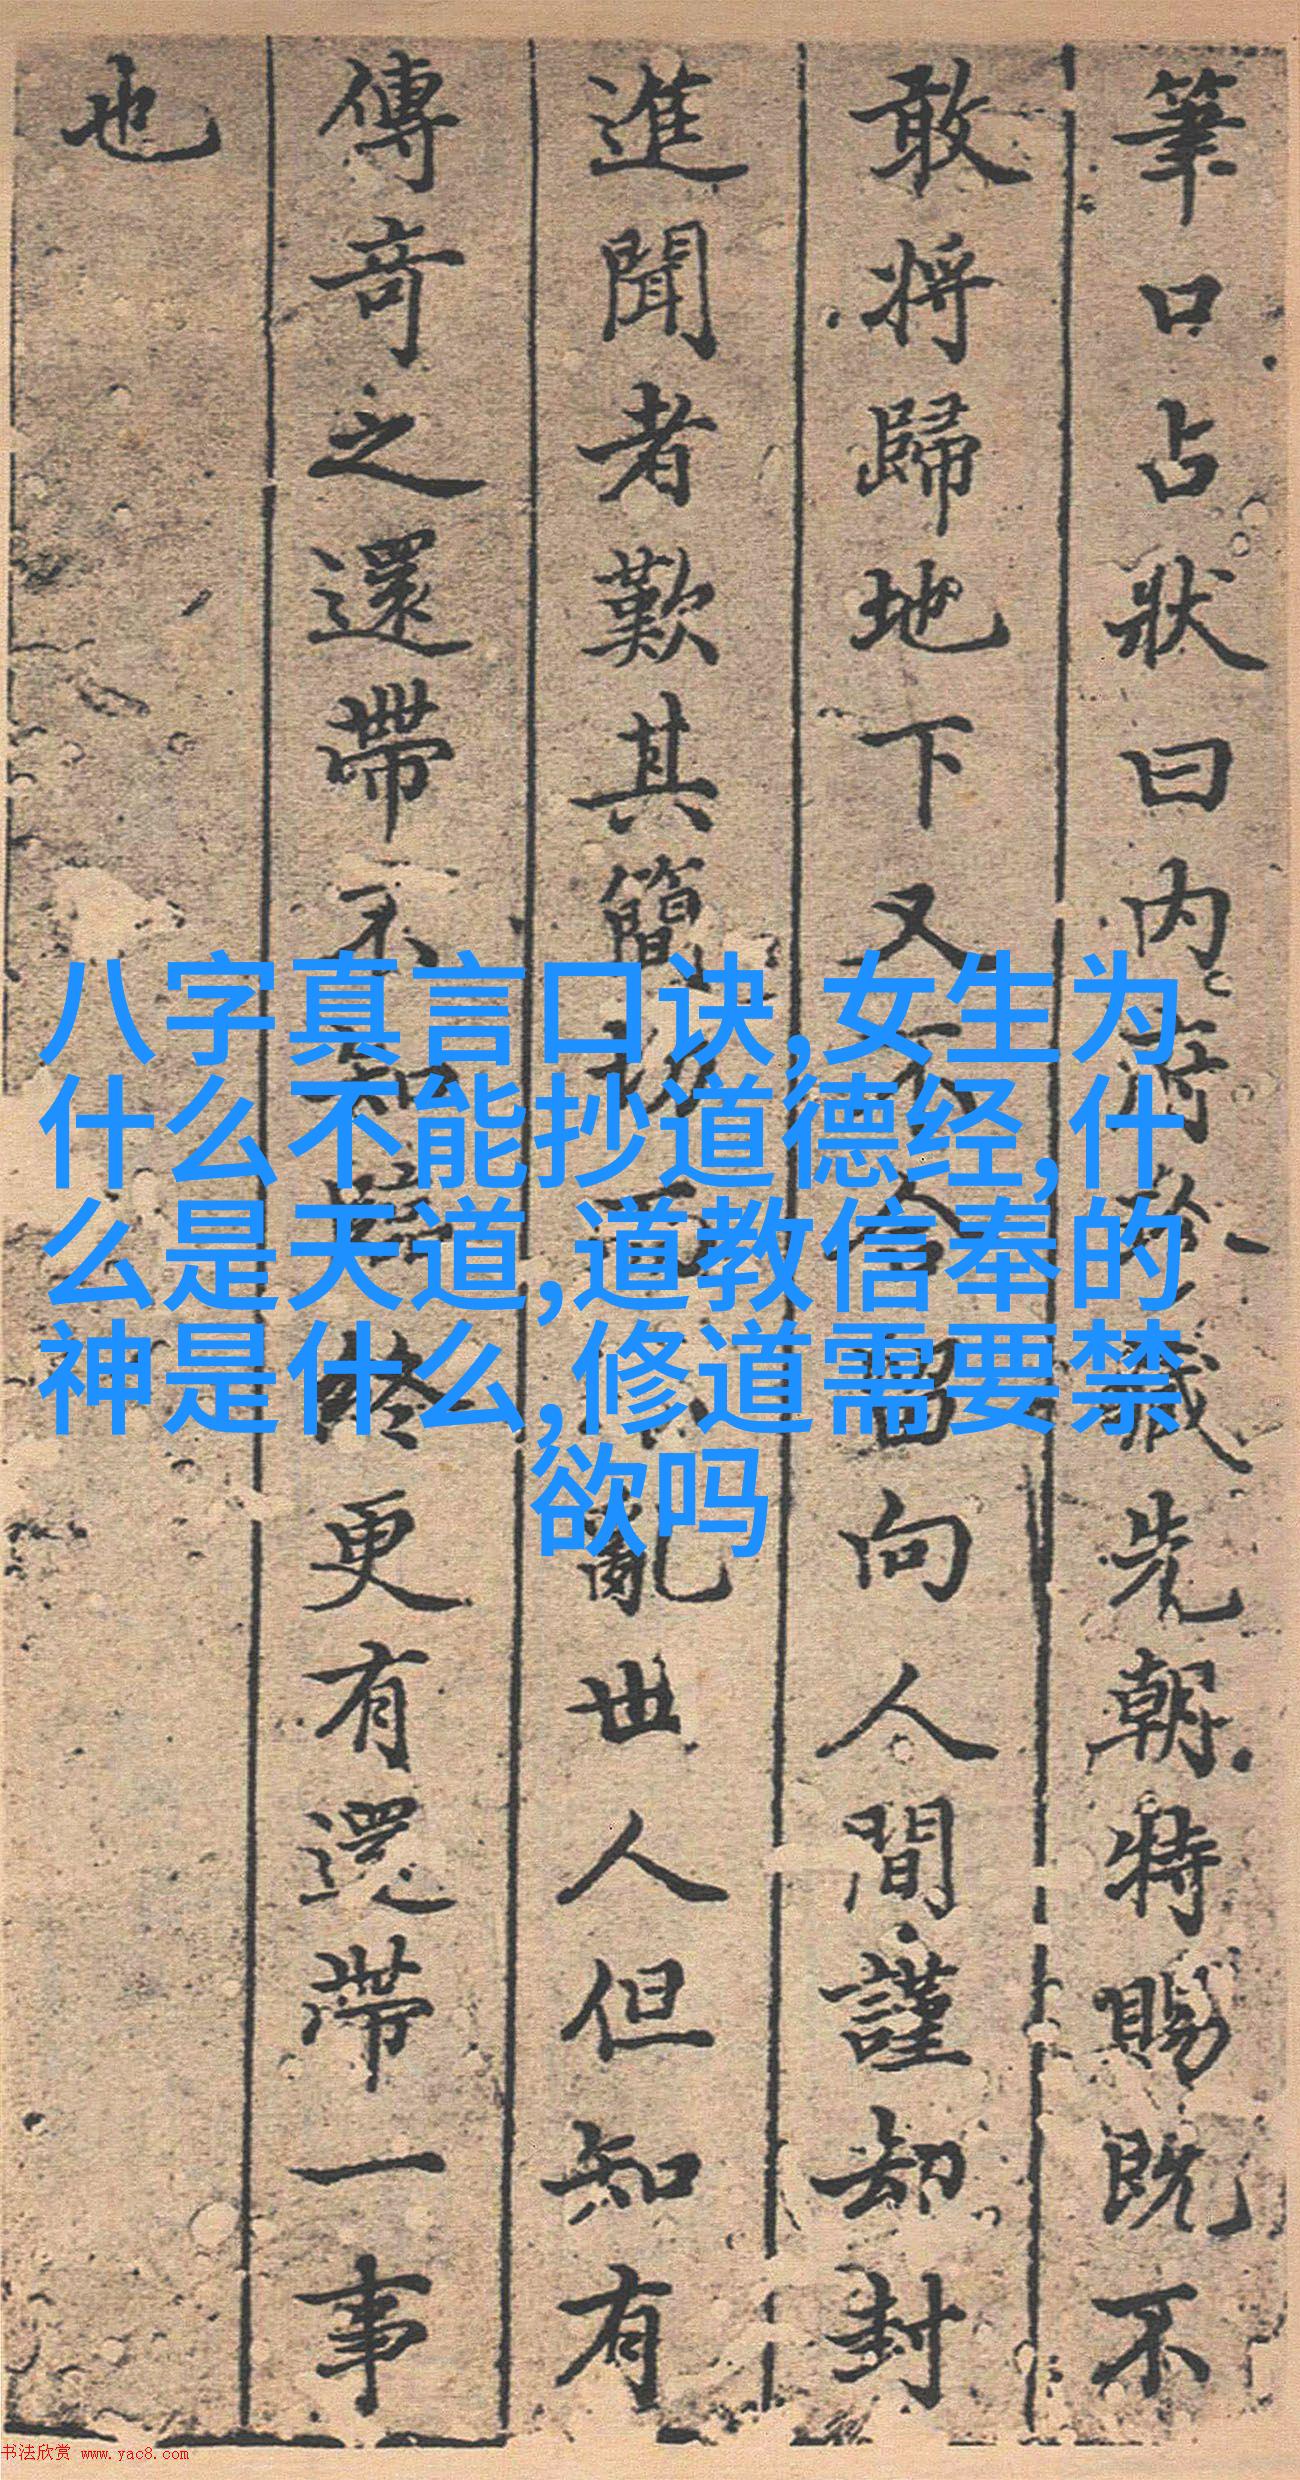 筆口占狀曰内府珍藏先朝特賜既不
敢將歸地下又不合留向人間謹却封
進聞者歎其簡切而不亂世人但知有
傳奇之還帶不知臨終更有還帶一事
也
八字真言口诀,女生为
什么不能抄道德经,什
么是天道,道教信奉的
神是什么,修道需要禁
欲吗
书法欣赏 www.yac8.com